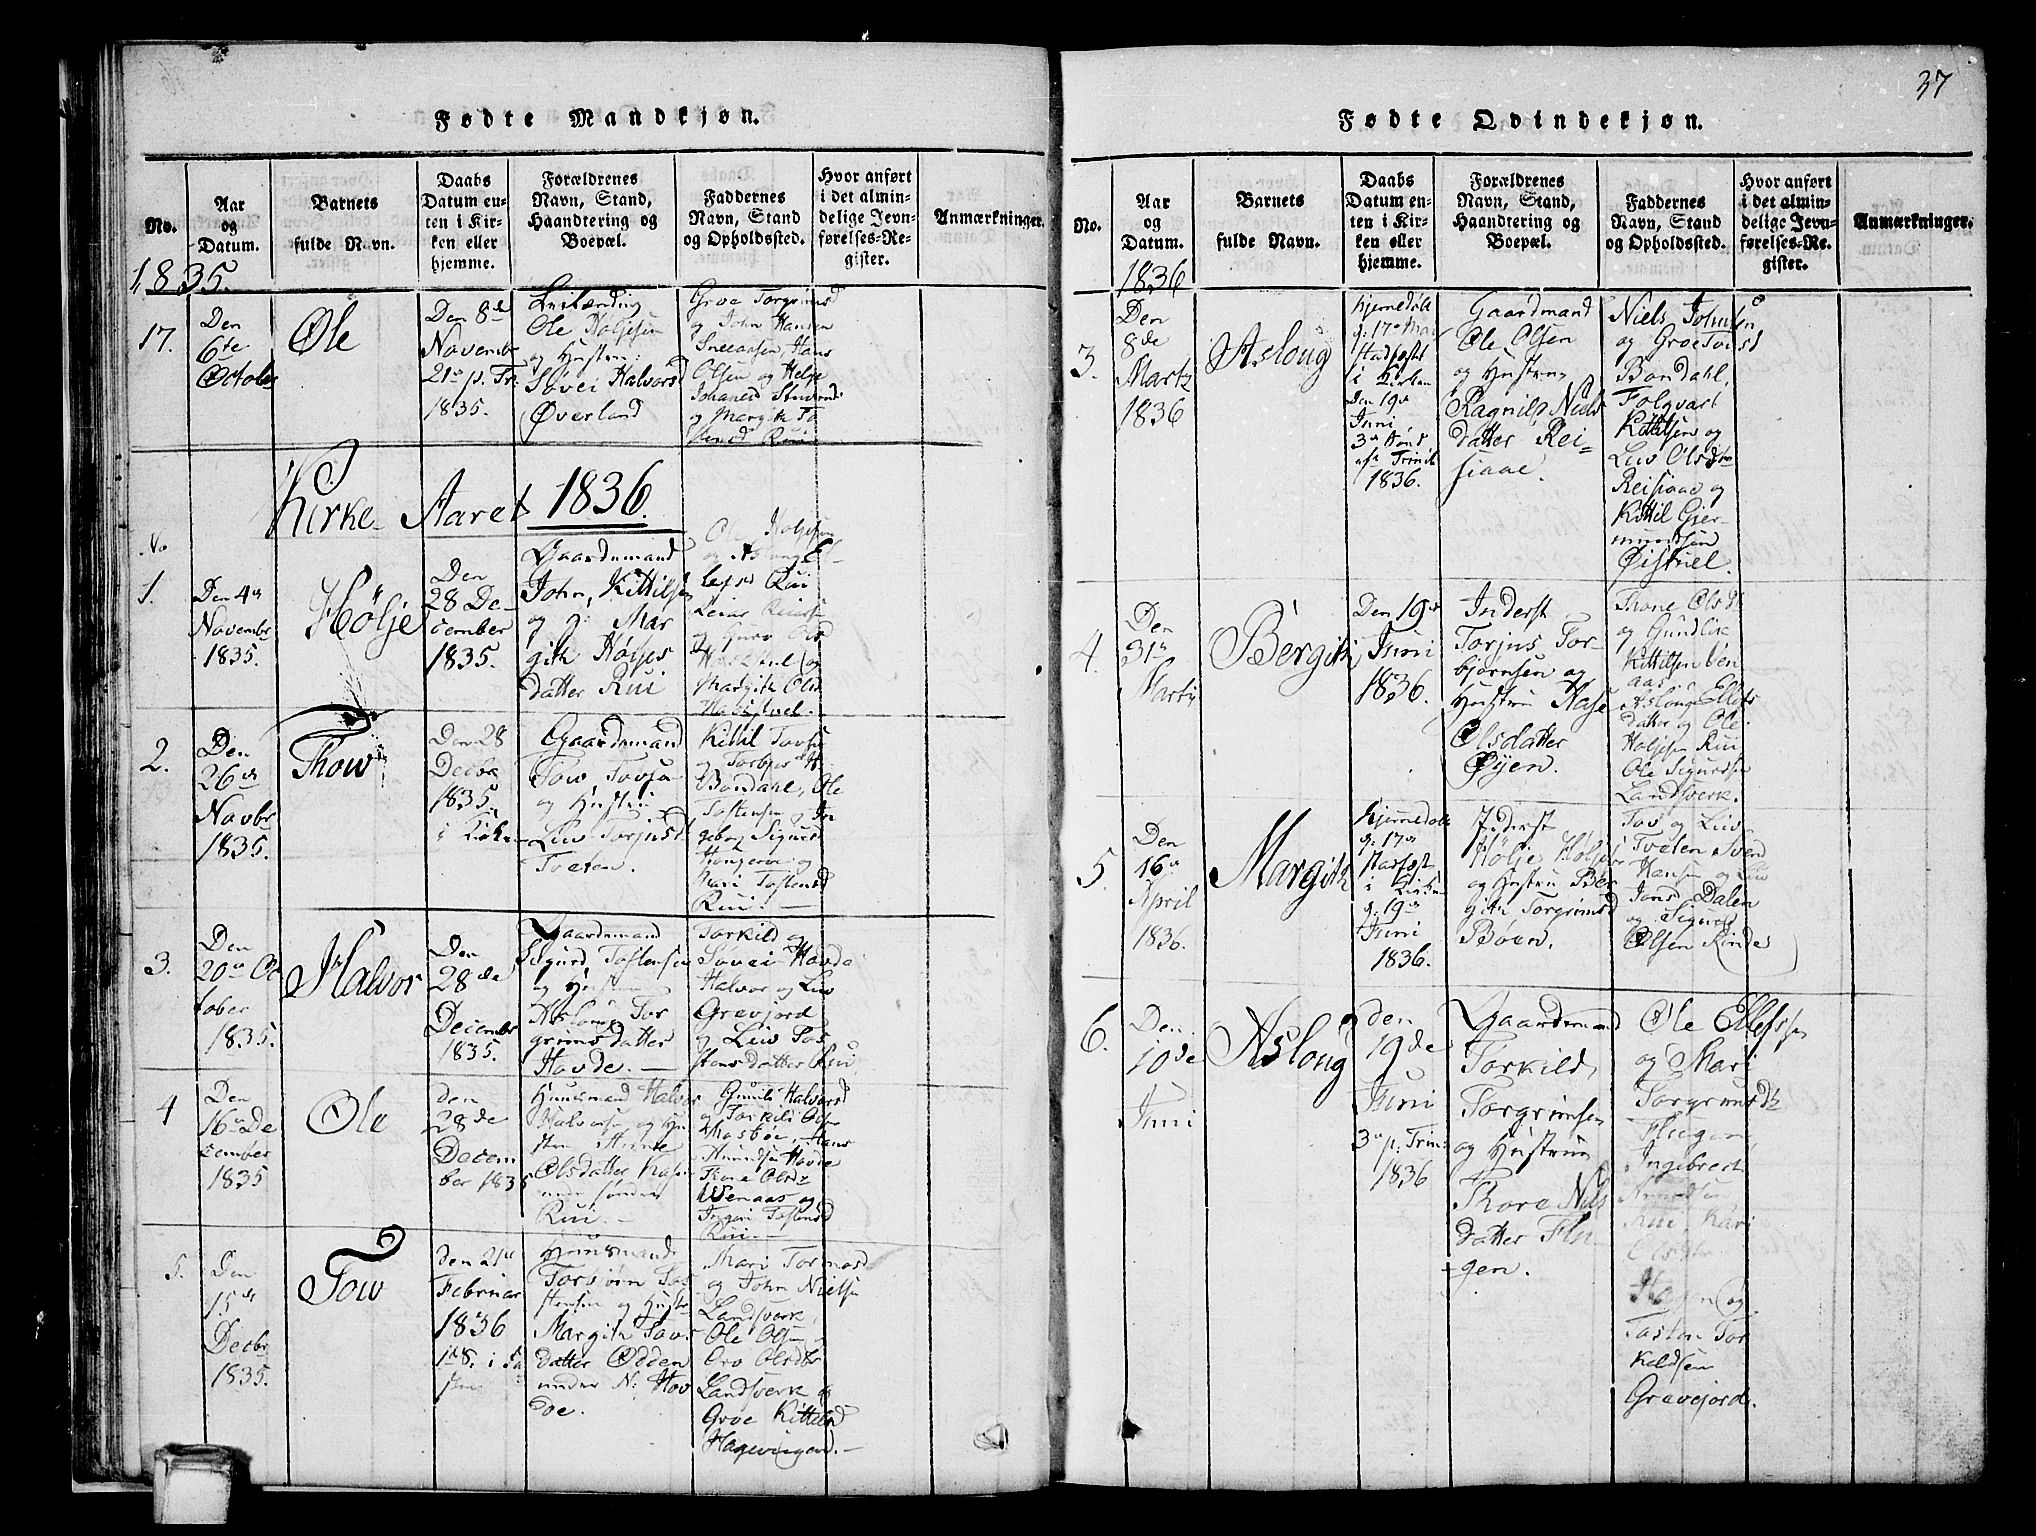 Fødte Mandkjøn.
No.
Aar
og
Datum.
Barnets
fulde Navn.
Daabs
Datum en-
ten i Kir-
ken eller
hjemme.
Forældrenes
Navn, Stand,
Haandtering og
Boepæl.
Faddernes
Navn, Stand
og Opholdssted.
Hvor anført
i det almin-
delige Jevn-
førelses-Re-
gister.
Anmærkninger.
1835.
17.
Den
6te
Octobr
Ole
Den 8de
Novembr
21 p. Tr.
1835.
Ole Høljesen
og Hustru
Sovei Halvorsd
Øverland
Groe Torgrimsd
og John Hansen
Hans
Olsen og Helje
Johannesd
og Margith To
Rui
Kirke Aaret 1836.
No
1.
Den 4de
Novembr
1835.
Hölje
Den
28 De-
cember
1835.
Gaardmand
John Kittilsen
og g: Mar
gith Høljes
datter Rui
Ole Høljesen
og Asloug El-
lefsd Rui
og Guro Olsd
og
Margith Olsd
2.
Den
26de
Novbr
1835.
Thow
Den 28
Decbr
1835.
i Kirken
Gaardmand
Tow Tovsen
og Hustru
Liv Torjusd
Tveten.
Kittil Tovsen
og Torbjør H.
Bondahl, Ole
Tostensen og In
geborg Sigurd
og
Mari Tostensd
Rui.
3.
Den
20de Oc
tober
1835.
Halvor
Den
28de
Decembr
1835.
Gaardmand
Sigurd Tostensen
og Hustru
Asloug Tor
grimsdatter
Hovde.
Torkild og
Sovei Hovde
Halvor og Liv
Gravejord
og Liv Tos
tensdatter Rui
4
Den
16de De
cember
1835
Ole
den
28de
Decem
ber 1835
Huusmand Halvor
Halvorsen og Hu
stru Anne
Olsdatter Kasin
under søndre
Rui.
Gunild Halvorsd
og Torkild Ols
Hans
Amundsen Hovde
Thone Olsd
Wenaas og
Ingeri Tostensd
Rui.
5.
Den
15de
Decbr
1835.
Tow
den 21de
Februar
1836
1ste S. i Fa
sten
Huusmand
Torbjørn Tos
tensen og Hustru
Margith Tovs
datter Odden
under N: Hov
de.
Mari Tormosd
og John Nielsen
Landsverk,
Ole Olsen
Oro Olsdtr
Landsverk og
Groe Kittilsd
Hagevingen.
37
Fødte Qvindekjøn.
No.
Aar
og
Datum.
Barnets
fulde Navn.
Daabs
Datum en-
ten i Kir-
ken eller
hjemme.
Forældrenes
Navn, Stand,
Haandtering og
Boepæl.
Faddernes
Navn, Stand
og Opholdssted.
Hvor anført
i det almin-
delige Jevn-
førelses-Re-
gister.
Anmærkninger.
1836
3.
Den
8de
Martz
1836
Asloug
Hjemedøbt
d. 17de Mai
Stadfæstet
i Kirken
Den 19de
Juni
3de Sønd
aft Trinit
1836.
Gaardmand
Ole Olsen
og Hustru
Ragnild Niels
datter Rei-
siaae.
Niels Johnsen
og Groe Tovsd
Bondahl,
Folqvart
Kittilsen og
Liv Olsdtr
Reisiaae og
Kittil Gjer-
mundsen
Øistuel.
4.
Den
31te
Marts
Bergith
Den 19de
Juni
1836.
Inderst
Torjus Tor-
bjørnsen og
Hustru Aase
Olsdatter
Øyen.
Thone Olsdt
og Gundlik
Kittilsen Ven
aas,
Asloug Ellefs
datter og Ole
Høljesen Rui
Ole Sigurdsen
Landsverk.
5.
Den
16de
April
1836.
Margith
Hjemedøbt
d. 17de
Stadfæst
i Kirken
d. 19de
Juni
1836.
Inderst
Hölje Høljesen
og Hustru Ber
gith Torgrimsd
Böen.
Tov og Liv
Tveten Svend
Hansen og Liv
Jons Dalen
og Sigurd
Olsen Rinde
6.
Den
10de
Juni
Aslong
den
19de
Juni
3de p. Trin:
1836
Gaardmand
Torkild
Torgrimsen
og Hustrue
Thore Niels
datter Flu-
gen.
Ole Ellefsen
og Mari
Torgrimsdtr
Flugen,
Ingebret
Amundsen
Rui, Kari
Olsdtr
Hagen og
Tosten Tor
kildsen
Gravejord.